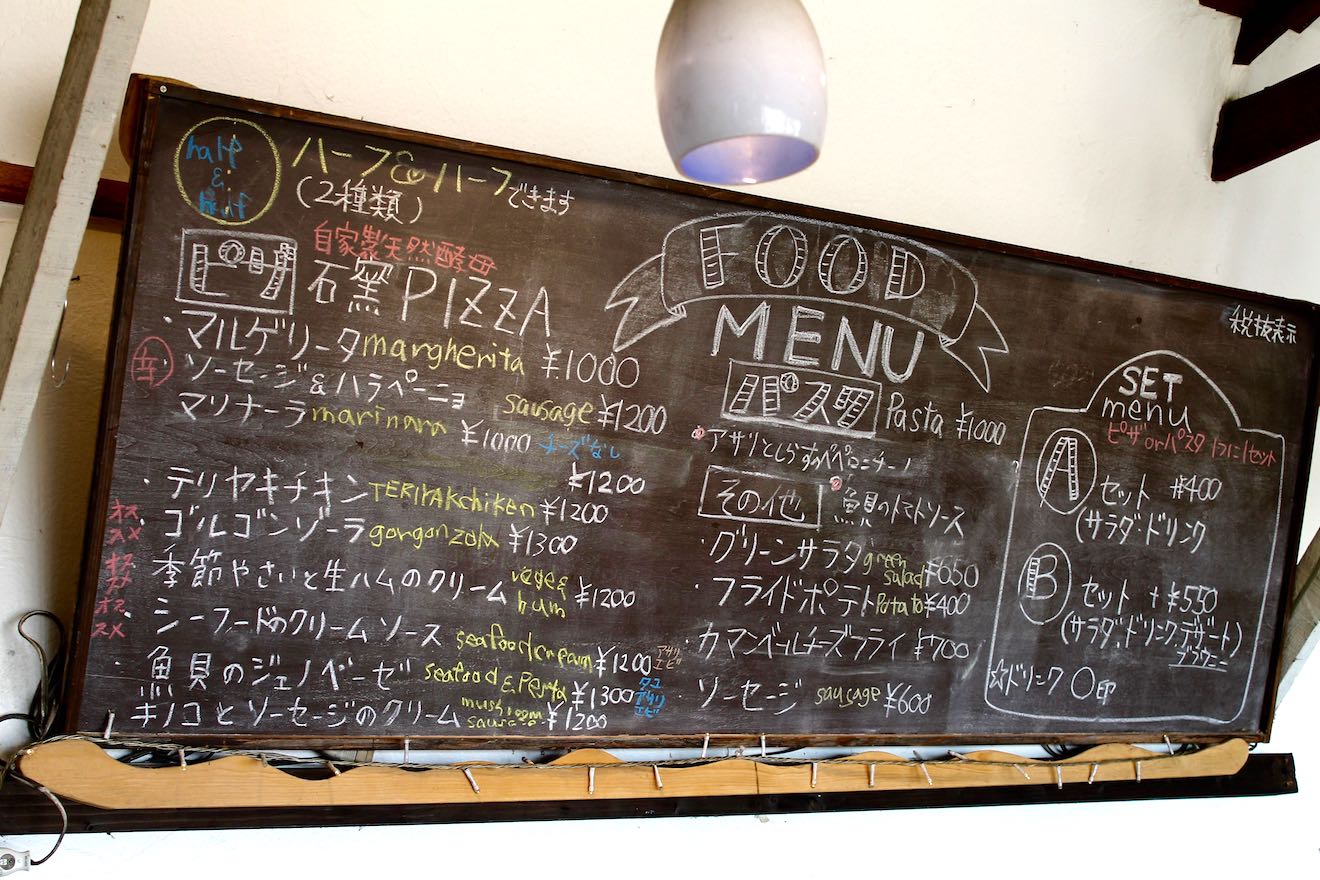 half
&
half
ハーフ&ハーフできます
(2種類)
自家製天然酵母
ピザ
石窯PIZZA
・マルゲリータmargherita ¥1000
辛 ソーセージ&ハラペーニョ sausage ¥1200
マリナーラmarinara ¥1000 チーズなし
¥1200
・テリヤキチキンTERIYAKchiken ¥1200
オススメ ゴルゴンゾーラgorgonzola ¥1300
オススメ 季節やさいと生ハムのクリーム vege& hum ¥1200
オススメ シーフードのクリームソース seafoodcream ¥1200 アサリ エビ
・魚貝のジェノベーゼ seafood & Pesta ¥1300 タコ アサリ エビ
キノコとソーセージのクリーム mushroom sausage ¥1200
FOOD
MENU
パスタ Pasta ¥1000
アサリとしらすのペペロンチーノ
魚貝のトマトソース
その他
・グリーンサラダ green salad ¥650
・フライドポテト Potato ¥400
・カマンベールチーズフライ ¥700
・ソーセージ sausage ¥600
税抜表示
SET
menu
ピザorパスタ 1つに1セット
Aセット ¥400
(サラダ・ドリンク
Bセット +¥550
(サラダ・ドリンク・デザート)
ブラウニー
☆ドリンク○印